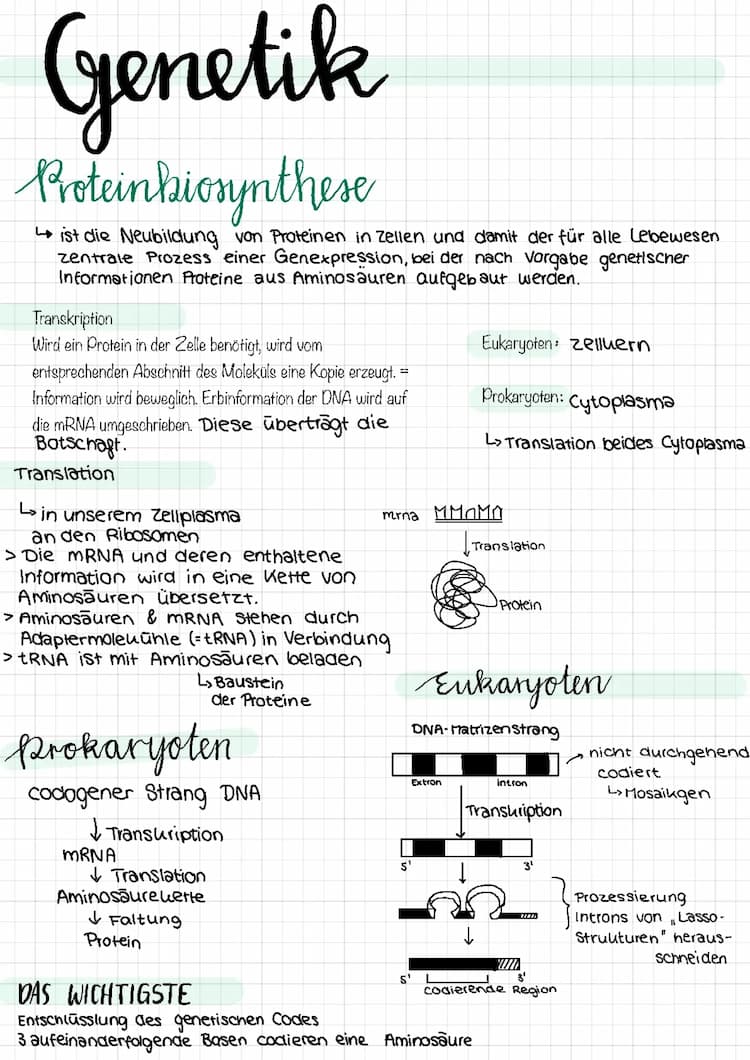 Genetik
Proteinbiosynthese
↳ ist die Neubildung von Proteinen in Zellen und damit der für alle Lebewesen
zentrale Prozess einer Genexpression, bei der nach Vorgabe genetischer
Informationen Proteine aus Aminosäuren aufgebaut werden.
Transkription
Wird ein Protein in der Zelle benötigt, wird vom
entsprechenden Abschnitt des Moleküls eine Kopie erzeugt. =
Information wird beweglich. Erbinformation der DNA wird auf
die mRNA umgeschrieben. Diese überträgt die
Botschaft.
Eukaryoten: Zellkern
Prokaryoten: Cytoplasma
↳ Translation beides Cytoplasma
Translation
↳ in unserem Zellplasma
an den Ribosomen
> Die mRNA und deren enthaltene
Information wird in eine Kette von
Aminosäuren übersetzt.
> Aminosäuren & mRNA stehen durch
Adaptermolekühle (=tRNA) in Verbindung
> tRNA ist mit Aminosäuren beladen
↳ Baustein
der Proteine
mrna
↓ Translation
Protein
Prokaryoten
codogener Strang DNA
↓ Transkription
mRNA
↓ Translation
Aminosäurekette
↓ Faltung
Protein
Eukaryoten
DNA-Matrizenstrang
Extron intron
→ nicht durchgehend
codiert
↳ Mosaikgen
Transkription
5' 3'
Prozessierung
Introns von „Lasso-
Strukturen" heraus-
schneiden
5' 3'
codierende Region
DAS WICHTIGSTE
Entschlüsslung des genetischen Codes
3 aufeinanderfolgende Basen codieren eine Aminosäure